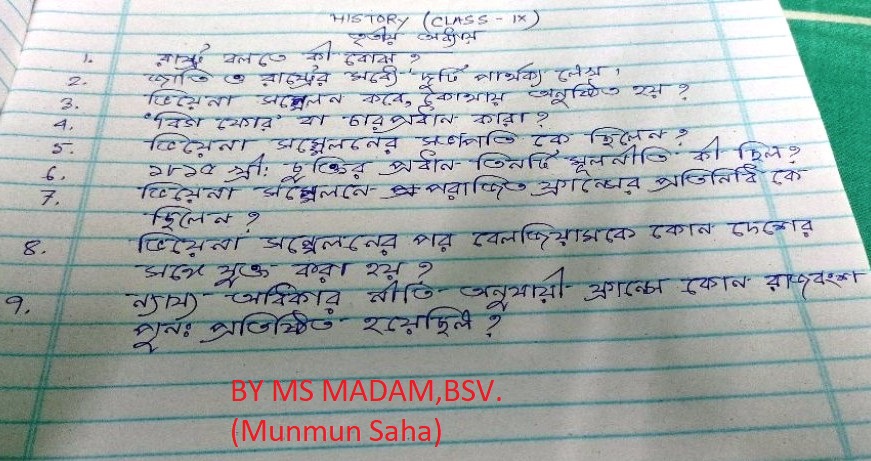 HISTORY (CLASS - IX)
তৃতীয় অধ্যায়
1. রাষ্ট্র বলতে কী বোঝ ?
2. জাতি ও রাষ্ট্রের মধ্যে দুটি পার্থক্য লেখ ।
3. ভিয়েনা সম্মেলন কবে, কোথায় অনুষ্ঠিত হয় ?
4. 'বিগ ফোর' বা চারপ্রধান কারা ?
5. ভিয়েনা সম্মেলনের সভাপতি কে ছিলেন ?
6. ১৮১৫ খ্রী: চুক্তির প্রধান তিনটি মূলনীতি কী ছিল ?
7. ভিয়েনা সম্মেলনে পরাজিত ফ্রান্সের প্রতিনিধি কে
ছিলেন ?
8. ভিয়েনা সম্মেলনের পর বেলজিয়ামকে কোন দেশের
সঙ্গে যুক্ত করা হয় ?
9. ন্যায্য অধিকার নীতি অনুযায়ী ফ্রান্সে কোন রাজবংশ
পুনঃ প্রতিষ্ঠিত হয়েছিল ?
BY MS MADAM,BSV.
(Munmun Saha)